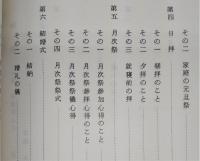 その二 家庭の元旦祭
第四 日拝
その一 朝拝のこと
その二 夕拝のこと
その三 就寝前の拝
第五 月次祭
その一 月次祭参加心得のこと
その二 月次祭参拝心得のこと
その三 月次祭祭儀心得
その四 月次祭祭式
第六 結婚式
その一 結納
その二 婚礼の儀